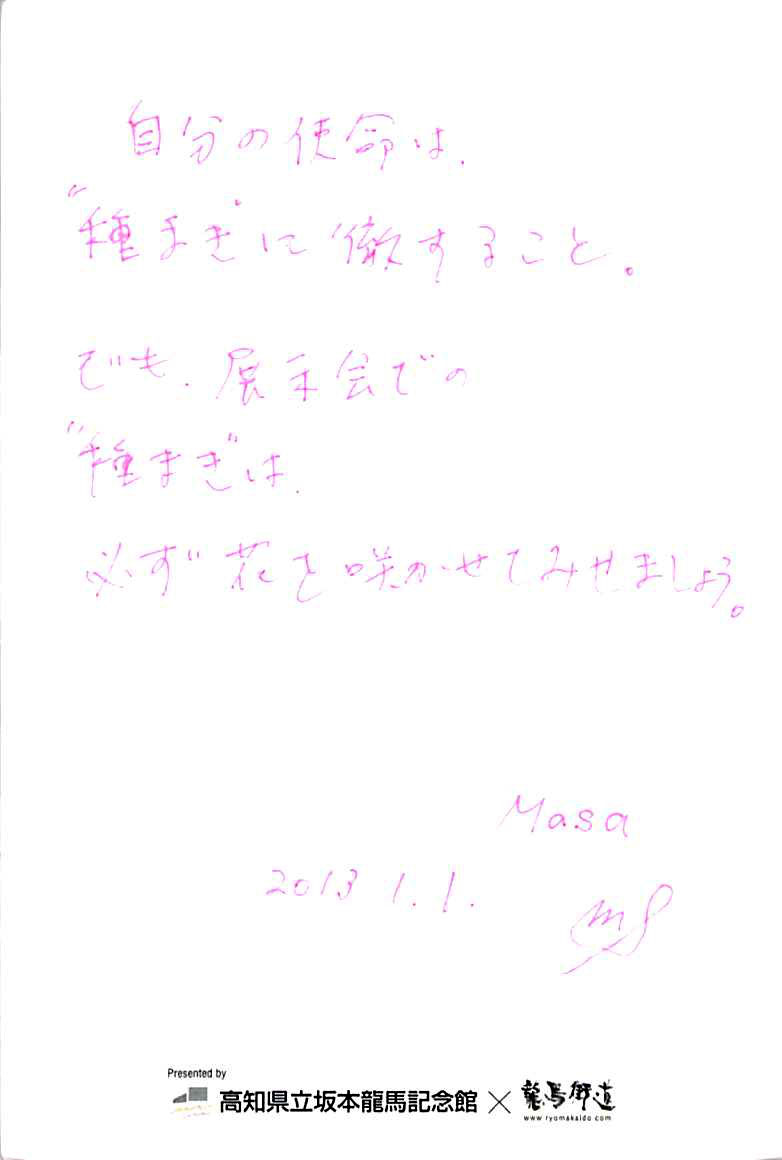 自分の使命は、
"種まき"に徹すること。
でも、展示会での
"種まき"は、
必ず花を咲かせてみせましょう。
Masa
2013 1.1.
MS
Presented by
高知県立坂本龍馬記念館×龍馬街道
www.ryomakaido.com